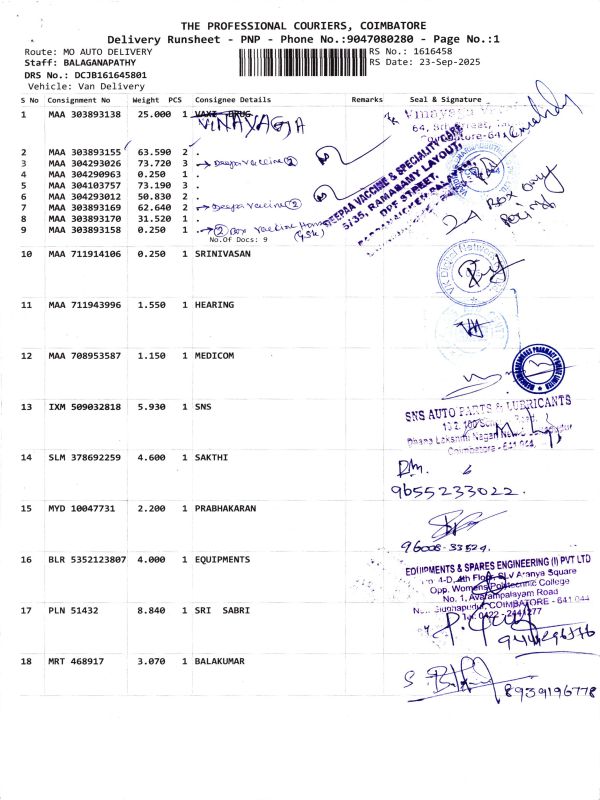 THE PROFESSIONAL COURIERS, COIMBATORE
Delivery Runsheet - PNP - Phone No.:9047080280 - Page No.:1
Route: MO AUTO DELIVERY
RS No.: 1616458
Staff: BALAGANAPATHY
RS Date: 23-Sep-2025
DRS No.: DCJB161645801
Vehicle: Van Delivery
S No Consignment No Weight PCS Consignee Details Remarks Seal & Signature
1 MAA 303893138 25.000 1 VAXI DRUG
VINAYAGA
2 MAA 303893155 63.590 2 .
3 MAA 304293026 73.720 3 → Deepa Vaccine ②
4 MAA 304290963 0.250 1 .
5 MAA 304103757 73.190 3 .
6 MAA 304293012 50.830 2 .
7 MAA 303893169 62.640 2 → Deepa Vaccine ②
8 MAA 303893170 31.520 1 .
9 MAA 303893158 0.250 1 → ② Box Vaccine
No.Of Docs: 9
DEEPAA VACCINE & SPECIALITY CARE
5/35, RAMASAMY LAYOUT,
DPF STREET,
Box only
10 MAA 711914106 0.250 1 SRINIVASAN
11 MAA 711943996 1.550 1 HEARING
12 MAA 708953587 1.150 1 MEDICOM
13 IXM 509032818 5.930 1 SNS
SNS AUTO PARTS & LUBRICANTS
Dhana Lakshmi Nagar
Coimbatore - 641
14 SLM 378692259 4.600 1 SAKTHI
9655233022.
15 MYD 10047731 2.200 1 PRABHAKARAN
96008-33524.
16 BLR 5352123807 4.000 1 EQUIPMENTS
EQUIPMENTS & SPARES ENGINEERING (I) PVT LTD
4-D, 4th Floor, Aranya Square
Opp. Womens Polytechnic College
No. 1, Avarampalayam Road
COIMBATORE - 641 044
17 PLN 51432 8.840 1 SRI SABRI
18 MRT 468917 3.070 1 BALAKUMAR
8939196778